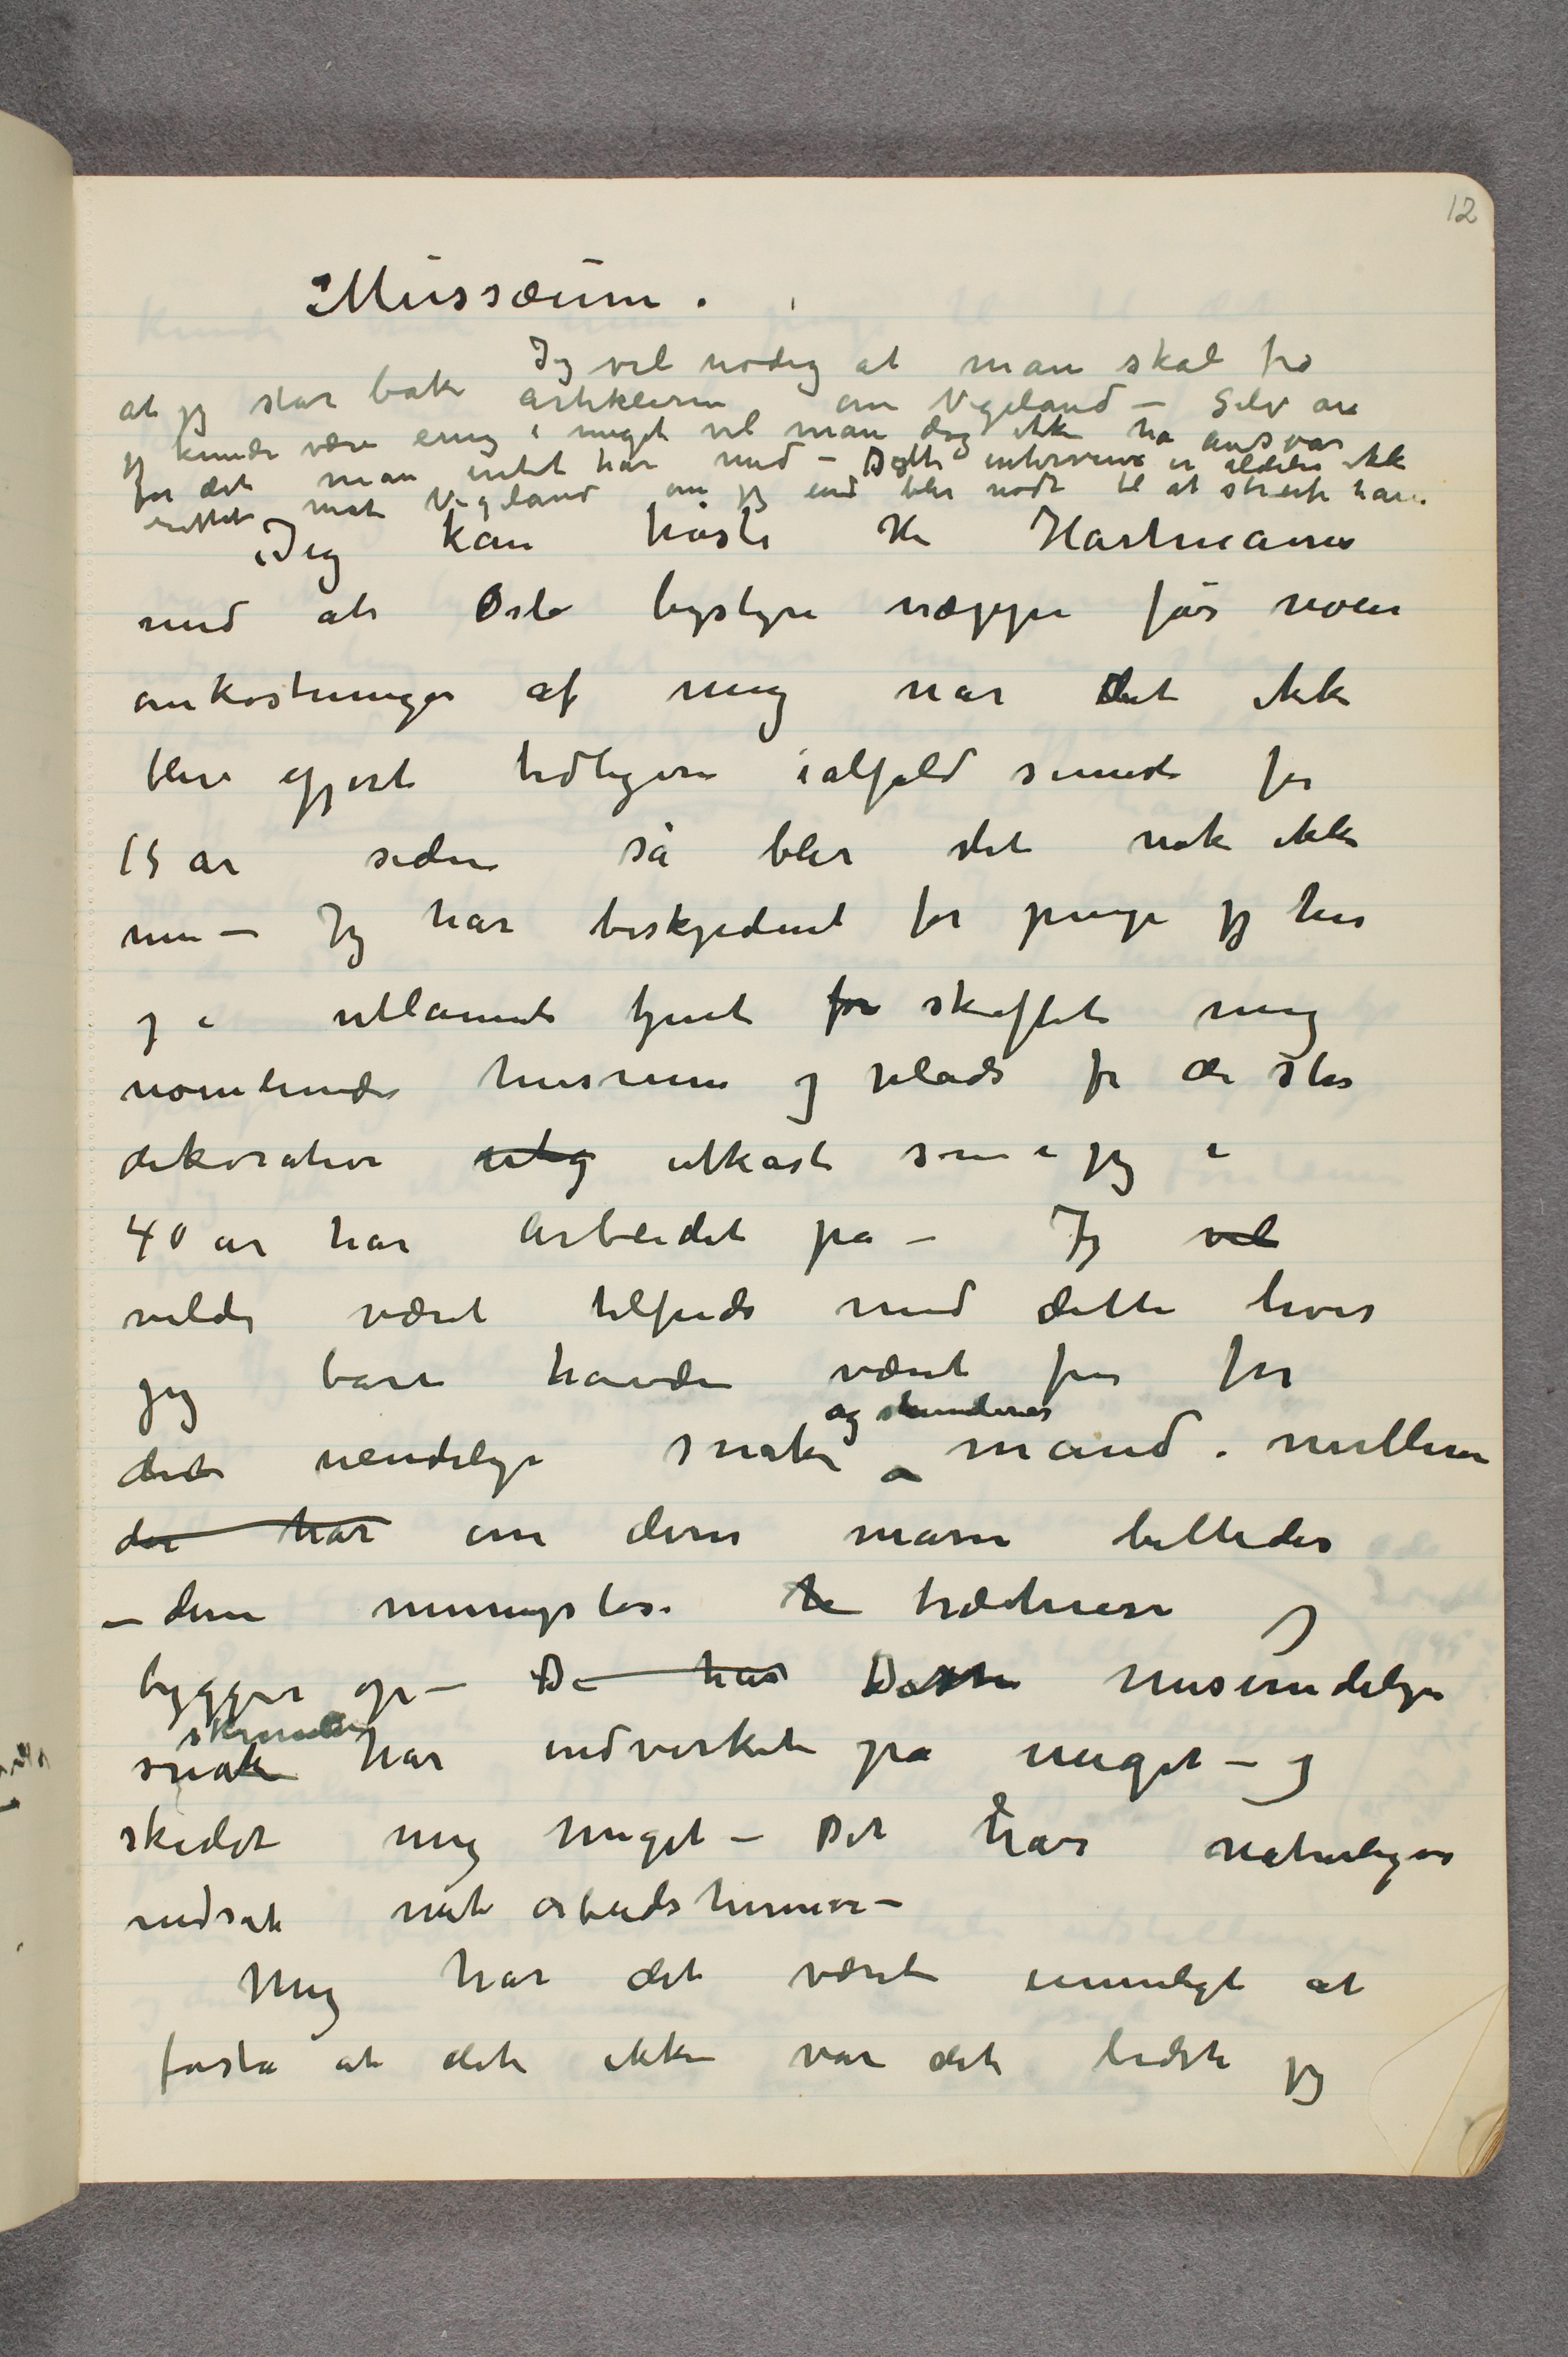 12
Mussæum.
Jeg vel nødig at man skal tro
at jeg står bak artiklerne om Vigeland – Selv om
jeg kunde være enig i meget vil man dog ikke ha ansvar
for det man intet har med – Dette interview er aldeles ikke
rettet mot Vigeland om jeg end blir nødt til at streife ham.
Jeg kan trøste Hr Hartmann
med at Oslo bystyre næppe får noen
omkostninger af mig når det ikke
blev gjort tidligere ialfald senest for
15 år siden så blir det nok ikke
nu – Jeg har beskjedent for penge jeg her
og i utlannet tjent for skaffet mig
nomlunde husrum og plads for de store
dekorative utkast som jeg i
40 år har arbeidet på – Jeg vel
vilde været tilfreds med dette hvis
jeg bare havde været fri for
det uendelige snak og skumlerier mand i mellem
der har om disse masse billeder
– disse meningsløse træhuse jeg
bygger op – De har Dette uuendelige
snak skumleri har indvirket på meget – og
skadet mig meget – Det har naturligvis
nedsat mit arbeidshumør –
Mig har det været umuligt at
forstå at det ikke var det bedste jeg